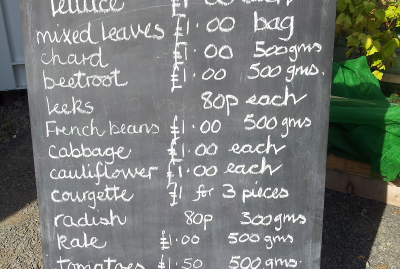 lettuce £1.00 each
mixed leaves £1.00 bag
chard £1.00 500gms
beetroot £1.00 500gms.
leeks 80p each
French beans £1.00 500gms
cabbage £1.00 each
cauliflower £1.00 each
courgette £1 for 3 pieces
radish 80p 300gms
kale £1.00 500gms
tomatoes £1.50 500gms.